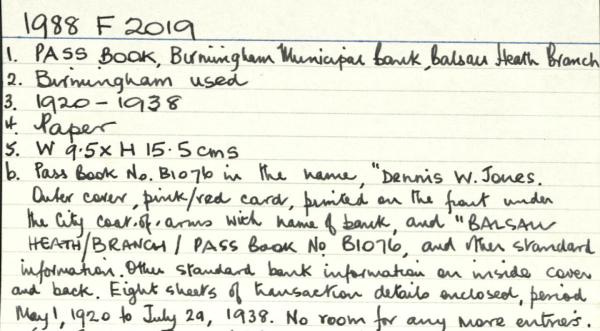 1988 F 2019
1. PASS BOOK, Birmingham Municipal Bank, Balsall Heath Branch
2. Birmingham used
3. 1920 - 1938
4. Paper
5. W 9.5 x H 15.5 cms
6. Pass Book No. B1076 in the name, "Dennis W. Jones.
Outer cover, pink/red card, printed on the front under
the City coat.of.arms with name of bank, and "BALSALL
HEATH/BRANCH / PASS BOOK No B1076, and other standard
information. Other standard bank information on inside cover
and back. Eight sheets of transaction details enclosed, period
May 1, 1920 to July 29, 1938. No room for any more entries.